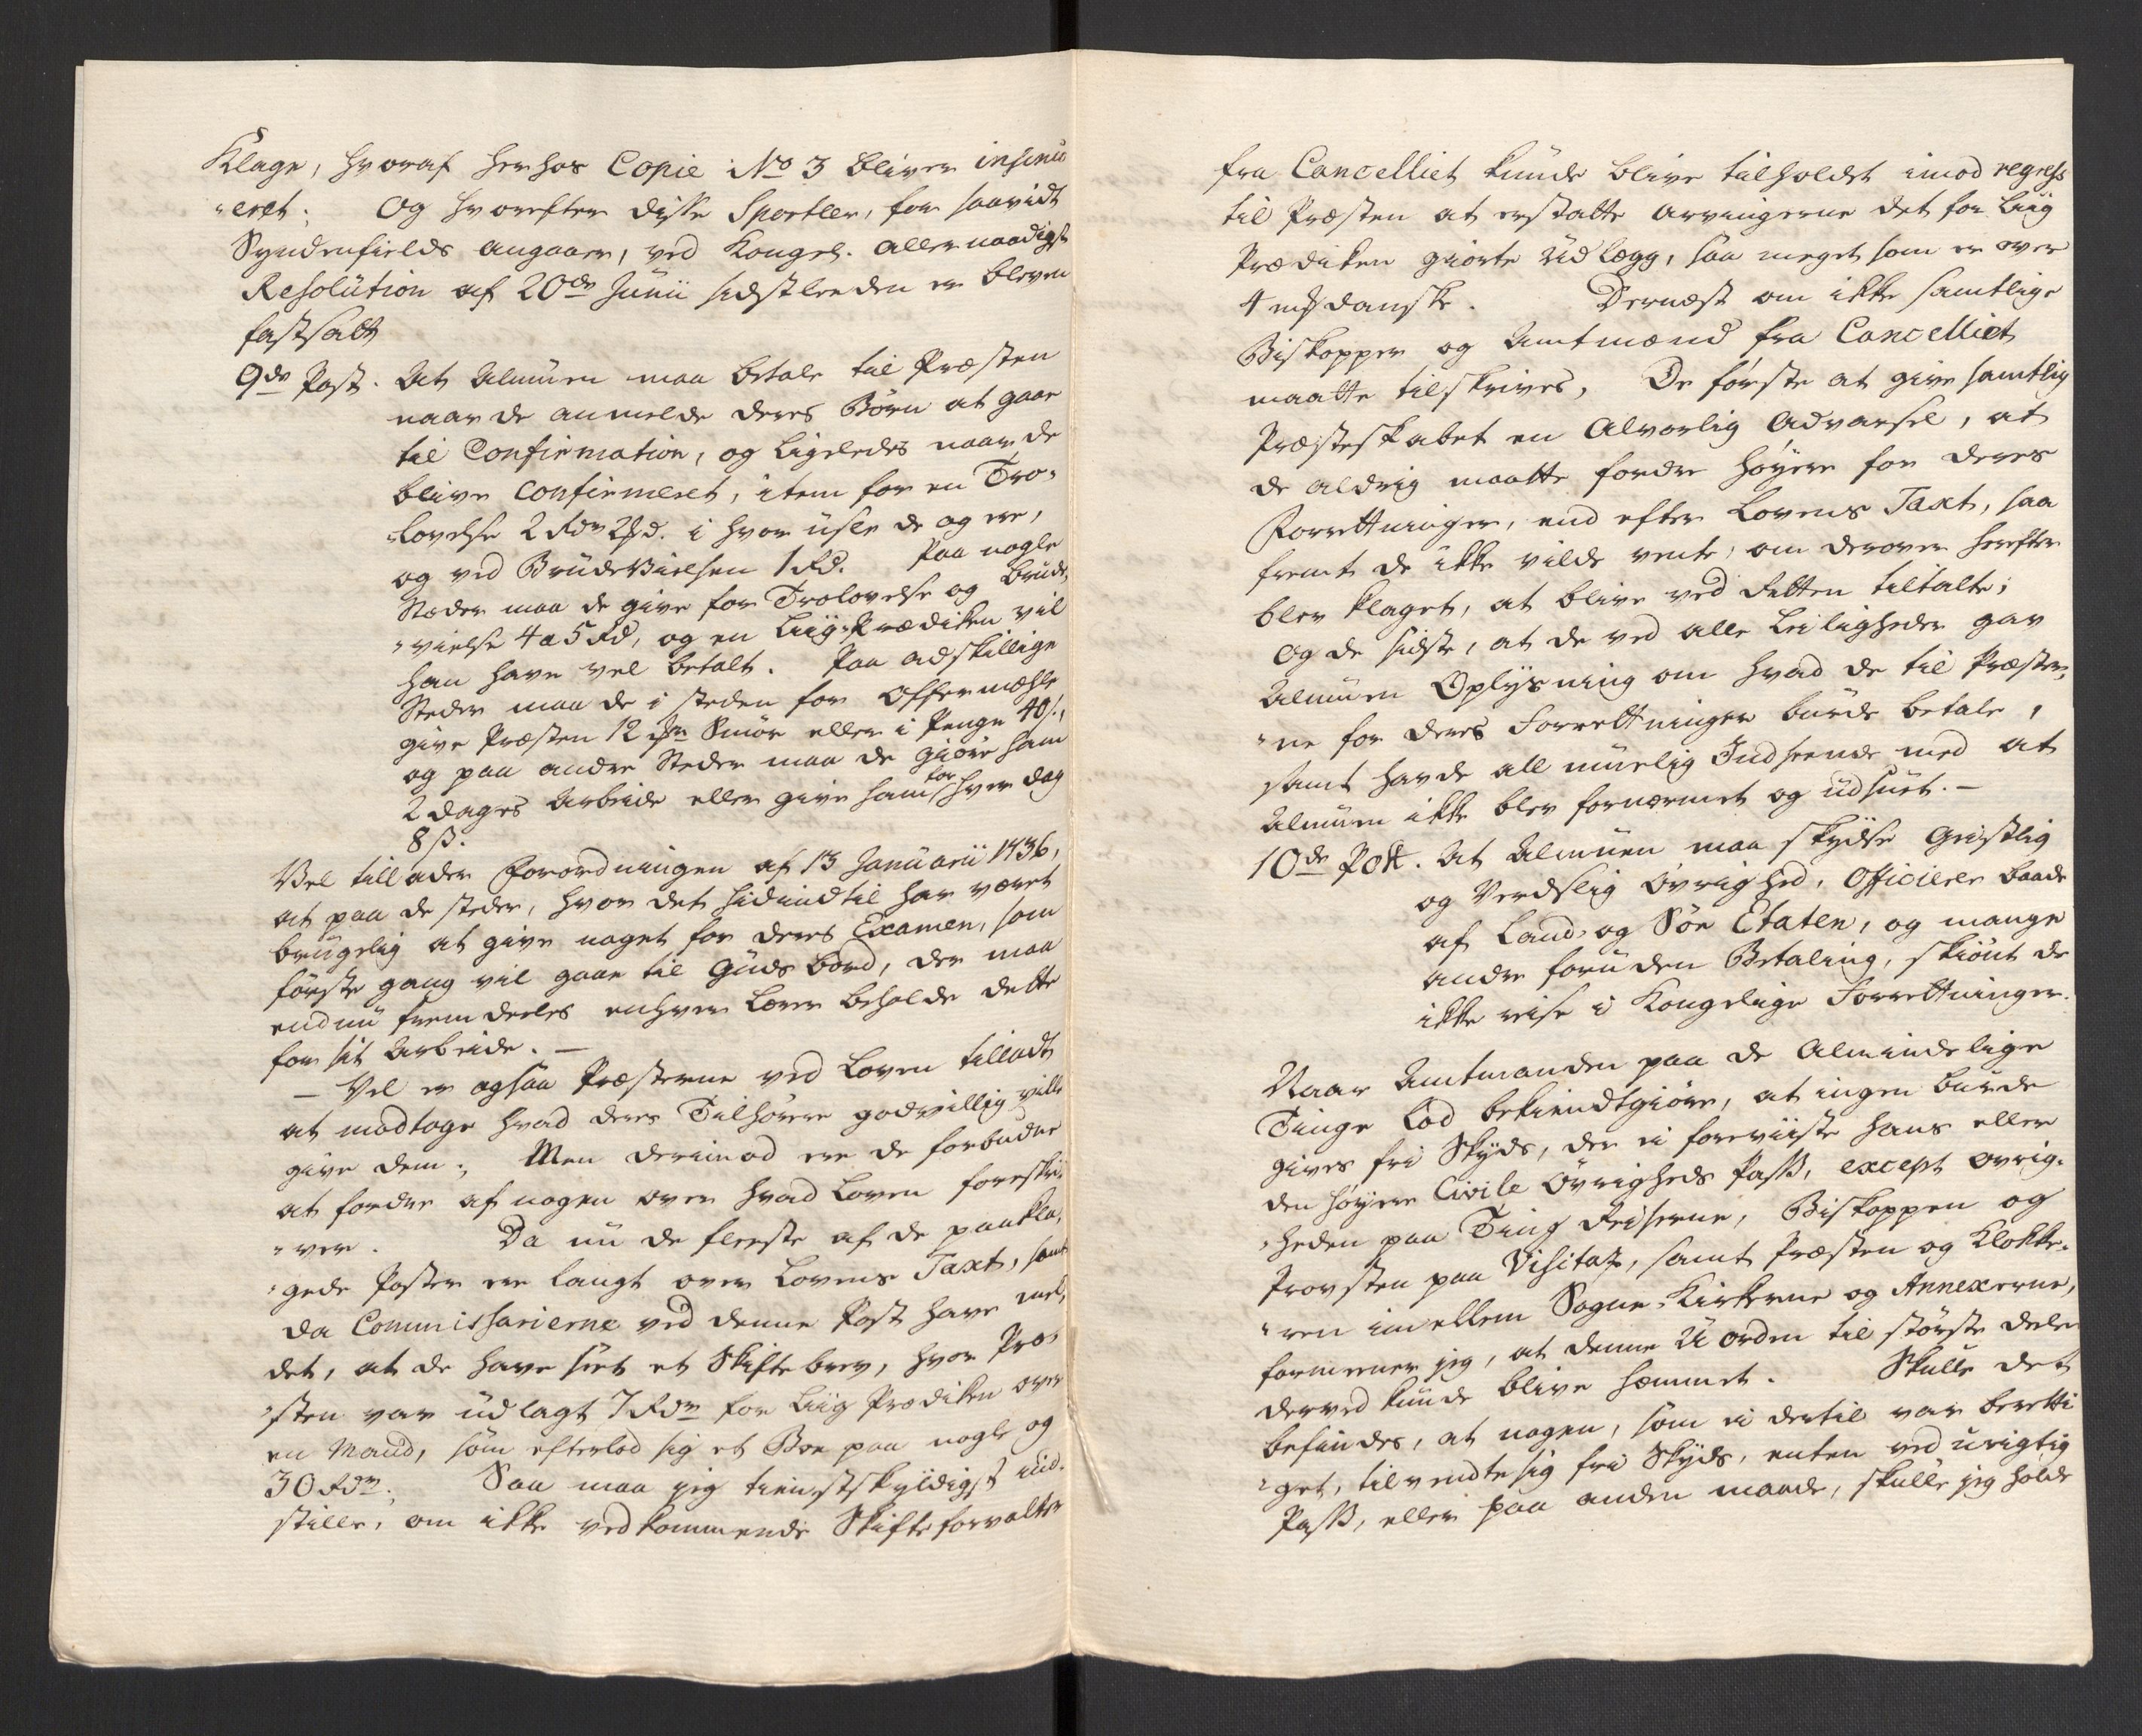 Klage, hvoraf herhos Copie No 3 bliver insinu
"eret; Og hvorefter disse Sportler, for saavidt
Syndenfields angaaer, ved Kongel. allernaadigst
Resolution af 20de Junii sidstleeden er bleven
fastsatt
9de Post. At Almuen maa betale til Præsten
naar de anmelde deres Börn at gaae
til Confirmation, og ligeledes naar de
blive Confirmeret, item for en Tro=
"lovelse 2 Rdr i hvor usle de og ere,
og ved Brudevielsen 1 Rd. Paa nogle
Steder maa de give for Trolovelse og Brude
"vielse 4 a 5 Rd, og en Liig-Prædiken vil
han have vel betalt. Paa adskillige
Steder maa de i steden for Offermæhle
give Præsten 12 Smör eller i Penge 40 s.,
og paa andre Steder maa de giöre ham
2 dages Arbeide eller give ham for hver dag
8 s.
Vel tillader Forordningen af 13 Januarii 1736,
at paa de steder, hvor det hidindtil har været
brugelig at give noget for deres Examen, som
förste gang vil gaae til Guds bord, der maa
endnu fremdeeles enhver Lærer beholde dette
for sit Arbeide. —
— Vel er ogsaa Præsterne ved Loven tilladt
at modtage hvad deres Tilhörere godvillig ville
give dem; Men derimod ere de forbudne
at fordre af nogen over hvad Loven foreskri
"ver. Da nu de fleeste af de paakla,
"gede Poster ere langt over Lovens Taxt, samt
da Commissarierne ved denne Post have mel,
det, at de have seet et Skiftebrev, hvor Præ
"sten var udlagt 7 Rdr for Liig Prædiken over
en Mand, som efterlod sig et Boe paa nogle og
30 Rdr; Saa maa jeg tienstskyldigst ind=
stille, om ikke vedkommende Skifteforvalter
fra Cancelliet kunde blive tilholdet imod regress
til Præsten at erstatte Arvingerne det for Liig
Prædiken giorte Udlægg, saa meget som er over
4 mk danske. Dernæst om ikke samtlige
Biskopper og Amtmænd fra Cancelliet
maatte tilskrives, De förste at give samtlig
Præsteskabet en Alvorlig Advarsel, at
de aldrig maatte fordre höyere for deres
Forrettninger, end efter Lovens Taxt, saa
fremt de ikke vilde vente, om derover herefter
blev klaget, at blive ved Retten tiltalte;
Og de sidste, at de ved alle Leiligheder gav
Almuen Oplysning om hvad de til Præster,
"ne for deres Forrettninger burde betale,
samt havde all muelig Indseende med at
Almuen ikke blev fornærmet og udsuet. —
10de Post. At Almuen maa skydse Geistlig
og Verdslig Övrighed, Officierer baade
af Land- og Söe Etaten, og mange
andre foruden Betaling, skiönt de
ikke reise i Kongelige Forrettninger.
Naar Amtmanden paa de Almindelige
Tinge lod bekiendtgiöre, at ingen burde
gives fri Skyds, der ei foreviiste hans eller
den höyere Civile Övrigheds Pass, except Övrig=
"heden paa Ting Reiserne, Biskoppen og
Provsten paa Visitaz, samt Præsten og Klokke=
"ren imellem Sogne-Kirkerne og Annexerne,
formeener jeg, at denne Uorden til störste deele
derved kunde blive hæmmet. Skulle det
befindes, at nogen, som ei dertil var beretti
"get, tilvendte sig fri Skyds, enten ved urigtig
Pass, eller paa anden maade, skulle jeg holde